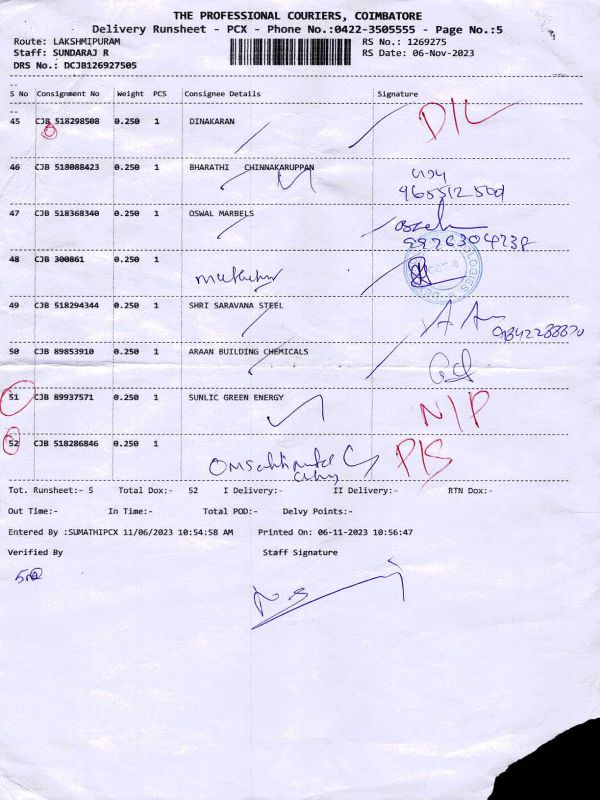 THE PROFESSIONAL COURIERS, COIMBATORE
Delivery Runsheet - PCX - Phone No.:0422-3505555 - Page No.:5
Route: LAKSHMIPURAM RS No.: 1269275
Staff: SUNDARAJ R RS Date: 06-Nov-2023
DRS No.: DCJB126927505
S No Consignment No Weight PCS Consignee Details Signature
45 CJB 518298508 0.250 1 DINAKARAN D/L
46 CJB 518088423 0.250 1 BHARATHI CHINNAKARUPPAN
47 CJB 518368340 0.250 1 OSWAL MARBELS
48 CJB 300861 0.250 1
49 CJB 518294344 0.250 1 SHRI SARAVANA STEEL
50 CJB 89853910 0.250 1 ARAAN BUILDING CHEMICALS
51 CJB 89937571 0.250 1 SUNLIC GREEN ENERGY N/P
52 CJB 518286846 0.250 1 P/S
Tot. Runsheet:- 5 Total Dox:- 52 I Delivery:- II Delivery:- RTN Dox:-
Out Time:- In Time:- Total POD:- Delvy Points:-
Entered By :SUMATHIPCX 11/06/2023 10:54:58 AM Printed On: 06-11-2023 10:56:47
Verified By Staff Signature